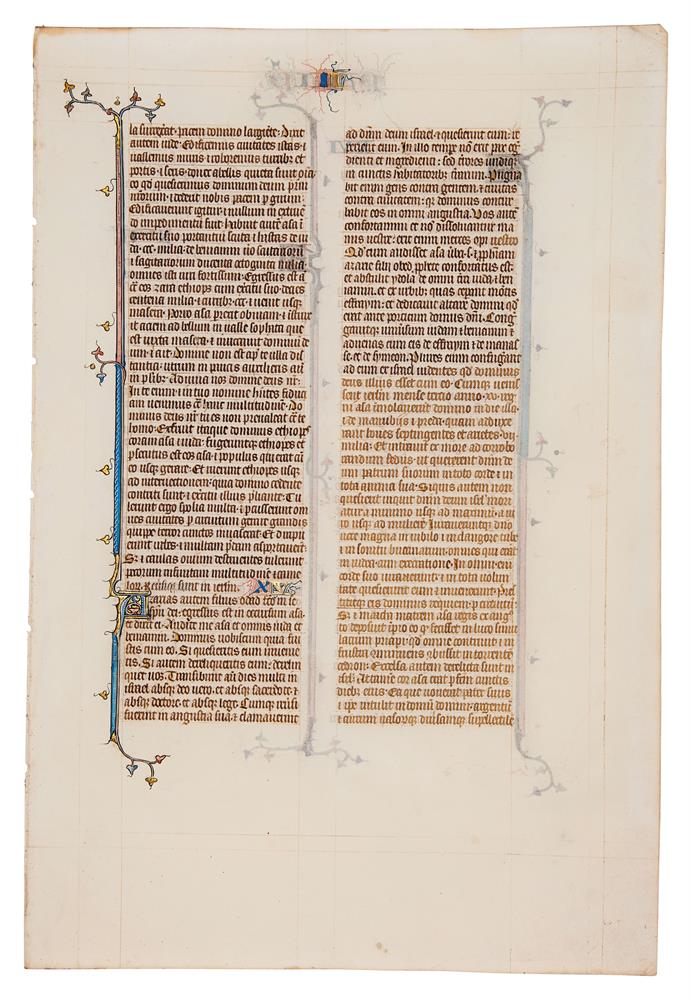 la surrexerat pacem domino largiente. Dixit
autem iude. Edificemus civitates istas. et
vallemus muris. et roboremus turribus et
portis. et seris. donec a bellis quieta sunt omia
eo qd quesierimus dominum deum prim
nrorum. et dederit nobis pacem p girum.
Edificaverunt igitur. et nullum in extruen
do impedimentum fuit. habuit autem asa in
exercitu suo portantium scuta et hastas de iu
da. ccc. milia. de beniamin vo scutariorum
et sagitariorum ducenta octoginta milia.
omnes isti viri fortissimi. Egressus est a
eos zara ethiops cum exercitu suo. decies
centena milia. et curribz. ccc. et venit usqz
maresa. Porro asa prexit obviam. et istruxit
aciem ad bellum in valle sophata que
est iuxta maresa. et invocavit dominum de
um. et ait. Domine non est apd te ulla dis
tantia. utrum in paucis auxilieris an
in plribz. Adiuva nos domine deus nr.
In te enim et in tuo nomine hntes fiduci
am venimus contra hanc multitudinem. Do
mine deus nr tu es non prevaleat contra te
homo. Exterruit itaque dominus ethiopes
coram asa et iuda. fugeruntqz ethiopes. et
psecutus est eos asa. et populus qui erat cum
eo usqz gerare. Et ruerunt ethiopes usqz
ad internetionem. quia domino cedente
contriti sunt. et exercitu illius preliante. Tu
lerunt ergo spolia multa. et pcusserunt om
nes civitates p circuitum gerare. grandis
quippe terror cunctos invaserat. Et diripu
erunt urbes. et multam predam asportaverunt.
Sz et caulas ovium destruentes tulerunt
pecorum infinitam multitudinem. et came
lorz. Reversiqz sunt in ierlm. XV
Azarias autem filius oded facto in se
spu dei. egressus est in occursum asa.
et dixit ei. Audite me asa et omnis iuda et
beniamin. Dominus vobiscum quia fui
stis cum eo. Si quesieritis eum invenie
tis. Si autem dereliqueritis eum. derelin
quet vos. Transibunt autem dies multi in
israel absqz deo vero. et absqz sacerdote. et
absqz doctore. et absqz lege. Cumqz reversi
fuerint in angustia sua. et clamaverint
ad dnm deum israel. et quesierint eum. re
perient eum. In illo tempore non erit pax egre
dienti et ingredienti. sed terrores undiqz
in cunctis habitatoribz terrarum. Pugna
bit enim gens contra gentem. et civitas
contra civitatem. quia dominus contur
babit eos in omni angustia. Vos autem
confortamini et non dissolvantur ma
nus vestre. erit enim merces opi vestro.
Qd cum audisset asa verba. et prophetiam
azarie filii obed prophete confortatus est.
et abstulit ydola de omni terra iuda et ben
iamin. et ex urbibz quas ceperat montis
effraym. et dedicavit altare domini qd
erat ante porticum domus dni. Cong
gavitqz universum iudam et beniamin. et
advenas cum eis de effraym et de manas
se. et de symeon. Plures enim confugerant
ad eum ex israel. videntes qd dominus
deus illius esset cum eo. Cumqz venis
sent ierlm mense tercio anno. xv. reg
ni asa. imolaverunt domino in die illa.
et de manubiis et preda quam adduxe
rant boves septingentos et arietes. vii.
milia. Et intravit ex more ad corrobo
randum fedus. ut quererent dnm de
um patrum suorum in toto corde et in
tota anima sua. Siquis autem non
quesierit inquit dnm deum isrl. mori
atur a minimo usqz ad maximum. a vi
ro usqz ad mulierem. Iuraveruntqz dno
voce magna in iubilo et in clangore tube.
et in sonitu buccinarum. omnes qui erant
in iudea cum execratione. In omni enim
corde suo iuraverunt. et in tota volun
tate quesierunt eum et invenerunt. Pre
stititqz eis dominus requiem p circuitum.
Sz et maacham matrem asa regis ex augus
to deposuit imperio eo qd fecisset in luco simu
lacrum priapi. qd omne contrivit et in
frusta comminuens combussit in torrente
cedron. Excelsa autem derelicta sunt in
isrl. Attamen cor asa erat pfectum cunctis
diebz eius. Ea que voverat pater suus
et ipe intulit in domum domini. argentum
et aurum. vasorumqz diversam supellectilem